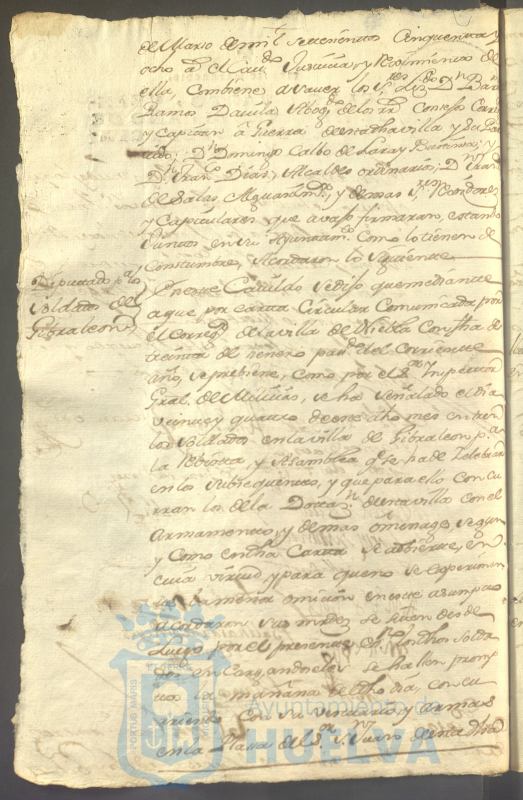 de Marzo de mil setezientos Cinquenta y
ocho a el Cau.do Justicia y Regimiento de
ella, Combiene a saver los S.res Liz.do D.n Bar
Ramos Davila Abog.do de los R.s Consejos Corr
y Capitan a Guerra de esta dha villa y su Par
tido; D.n Domingo Calbo de Lara y
D.n Fran.co Diaz, Alcaldes ordinarios; D.n Fran
de Salas, y demas S.res Rexidores
y Capitulares que avajo firmaron, estando
Juntos en su Ayuntam.to Como lo tienen de
Constumbre, Acordaron lo siguiente
Diputado p.a los
soldados de
Gibraleon
En este Cavildo se dijo que mediante
a que por carta Circular Comunicada por
el Correg.r de la villa de Niebla Con fha de
treinta de henero pas.do de el corriente
año, se prebiene, como por el S.or Inspector
Gral. de Milicias, se ha señalado el dia
veinte y quatro de este dho mes en
los soldados en la villa de Gibraleon p.a
la Rebista, y Asamblea q.e se ha de Zelebrar
en los subsequentes, y que para ello concu
rran los de la Dotaz.n de esta villa con el
Armamento, y demas omenage segun
y Como en dha Carta se adbierte, en
cuia virtud, y para que no se experimen
te la menor omicion en este asumpto
acordaron sus mrdes se
luego por el presente a los dhos solda
dos encargandoles se hallen promp
tos la mañana de dho dia, con su
vestuario y armas
en la Plaza de esta dha
Ayuntamiento de
HUELVA
PORTUS MARIS